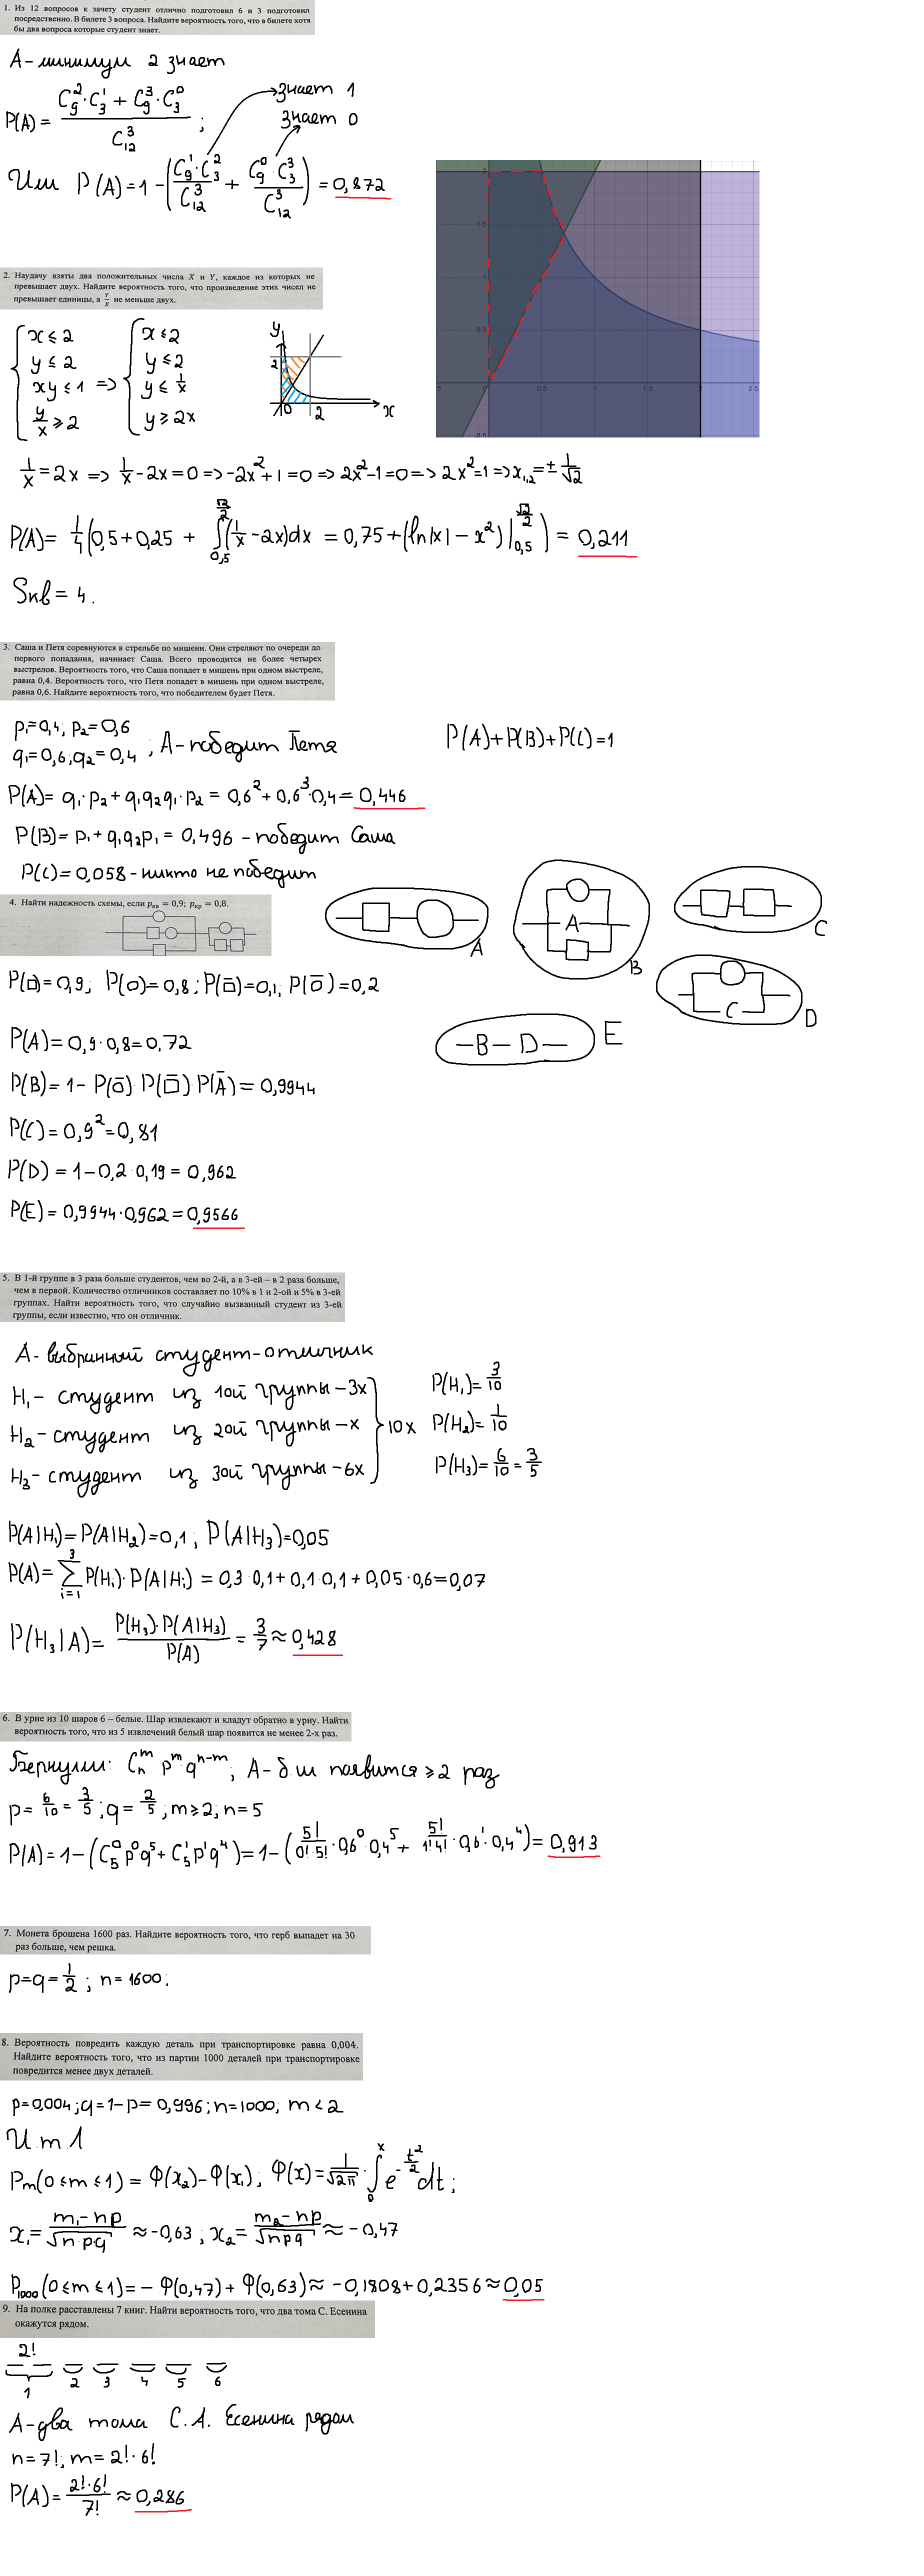 1. Из 12 вопросов к зачету студент отлично подготовил 6 и 3 подготовил
посредственно. В билете 3 вопроса. Найдите вероятность того, что в билете хотя
бы два вопроса которые студент знает.
A - минимум 2 знает
P(A) = (C₉²·C₃¹ + C₉³·C₃⁰) / C₁₂³ ;
знает 1
знает 0
Или P(A) = 1 - (C₉¹·C₃² / C₁₂³ + C₉⁰·C₃³ / C₁₂³) = 0,872
2
1.5
1
0.5
0
0.5
1
1.5
2
2.5
-0.5
2. Наудачу взяты два положительных числа X и Y, каждое из которых не
превышает двух. Найдите вероятность того, что произведение этих чисел не
превышает единицы, а Y/X не меньше двух.
{ x ≤ 2 => { x ≤ 2
y ≤ 2 y ≤ 2
xy ≤ 1 y ≤ 1/x
y/x ≥ 2 y ≥ 2x
y
2
0 2 x
1/x = 2x => 1/x - 2x = 0 => -2x² + 1 = 0 => 2x² - 1 = 0 => 2x² = 1 => x₁,₂ = ± 1/√2
P(A) = 1/4 (0,5 + 0,25 + ∫₀,₅^(√2/2) (1/x - 2x)dx = 0,75 + (ln|x| - x²)|₀,₅^(√2/2)) = 0,211
Sкв = 4.
3. Саша и Петя соревнуются в стрельбе по мишени. Они стреляют по очереди до
первого попадания, начинает Саша. Всего проводится не более четырех
выстрелов. Вероятность того, что Саша попадет в мишень при одном выстреле,
равна 0,4. Вероятность того, что Петя попадет в мишень при одном выстреле,
равна 0,6. Найдите вероятность того, что победителем будет Петя.
p₁=0,4; p₂=0,6
q₁=0,6, q₂=0,4 ; A - победит Петя
P(A)+P(B)+P(C)=1
P(A) = q₁·p₂ + q₁q₂q₁·p₂ = 0,6² + 0,6³·0,4 = 0,446
P(B) = p₁ + q₁q₂p₁ = 0,496 - победит Саша
P(C) = 0,058 - никто не победит
4. Найти надежность схемы, если pкв = 0,9; pкр = 0,8.
A
A
B
C
C
D
-B- D- E
P(□)=0,9; P(○)=0,8; P(□̄)=0,1; P(○̄)=0,2
P(A) = 0,9·0,8 = 0,72
P(B) = 1 - P(○̄)·P(□̄)·P(Ā) = 0,9944
P(C) = 0,9² = 0,81
P(D) = 1 - 0,2·0,19 = 0,962
P(E) = 0,9944·0,962 = 0,9566
5. В 1-й группе в 3 раза больше студентов, чем во 2-й, а в 3-ей – в 2 раза больше,
чем в первой. Количество отличников составляет по 10% в 1 и 2-ой и 5% в 3-ей
группах. Найти вероятность того, что случайно вызванный студент из 3-ей
группы, если известно, что он отличник.
A - выбранный студент - отличник
H₁ - студент из 1ой группы - 3x
H₂ - студент из 2ой группы - x
H₃ - студент из 3ой группы - 6x
} 10x
P(H₁) = 3/10
P(H₂) = 1/10
P(H₃) = 6/10 = 3/5
P(A|H₁) = P(A|H₂) = 0,1; P(A|H₃) = 0,05
P(A) = ∑ᵢ₌₁³ P(Hᵢ)·P(A|Hᵢ) = 0,3·0,1 + 0,1·0,1 + 0,05·0,6 = 0,07
P(H₃|A) = P(H₃)·P(A|H₃) / P(A) = 3/7 ≈ 0,428
6. В урне из 10 шаров 6 – белые. Шар извлекают и кладут обратно в урну. Найти
вероятность того, что из 5 извлечений белый шар появится не менее 2-х раз.
Бернулли: Cₙᵐ pᵐ qⁿ⁻ᵐ; A - б.ш появится ≥ 2 раз
p = 6/10 = 3/5; q = 2/5; m ≥ 2; n = 5
P(A) = 1 - (C₅⁰p⁰q⁵ + C₅¹p¹q⁴) = 1 - (5!/(0!·5!)·0,6⁰·0,4⁵ + 5!/(1!·4!)·0,6¹·0,4⁴) = 0,913
7. Монета брошена 1600 раз. Найдите вероятность того, что герб выпадет на 30
раз больше, чем решка.
p=q=1/2 ; n=1600;
8. Вероятность повредить каждую деталь при транспортировке равна 0,004.
Найдите вероятность того, что из партии 1000 деталей при транспортировке
повредится менее двух деталей.
p=0,004; q=1-p=0,996; n=1000; m<2
И т Л
Pₘ(0≤m≤1) = Φ(x₂)-Φ(x₁); Φ(x) = 1/√2π · ∫₀ˣ e^(-t²/2) dt;
x₁ = (m₁-np)/√(n·pq) ≈ -0,63; x₂ = (m₂-np)/√(npq) ≈ -0,47
P₁₀₀₀(0≤m≤1) = -Φ(0,47)+Φ(0,63) ≈ -0,1808+0,2356 ≈ 0,05
9. На полке расставлены 7 книг. Найти вероятность того, что два тома С. Есенина
окажутся рядом.
2!
1 2 3 4 5 6
A - два тома С.А. Есенина рядом
n=7!, m=2!·6!
P(A) = 2!·6!/7! ≈ 0,286